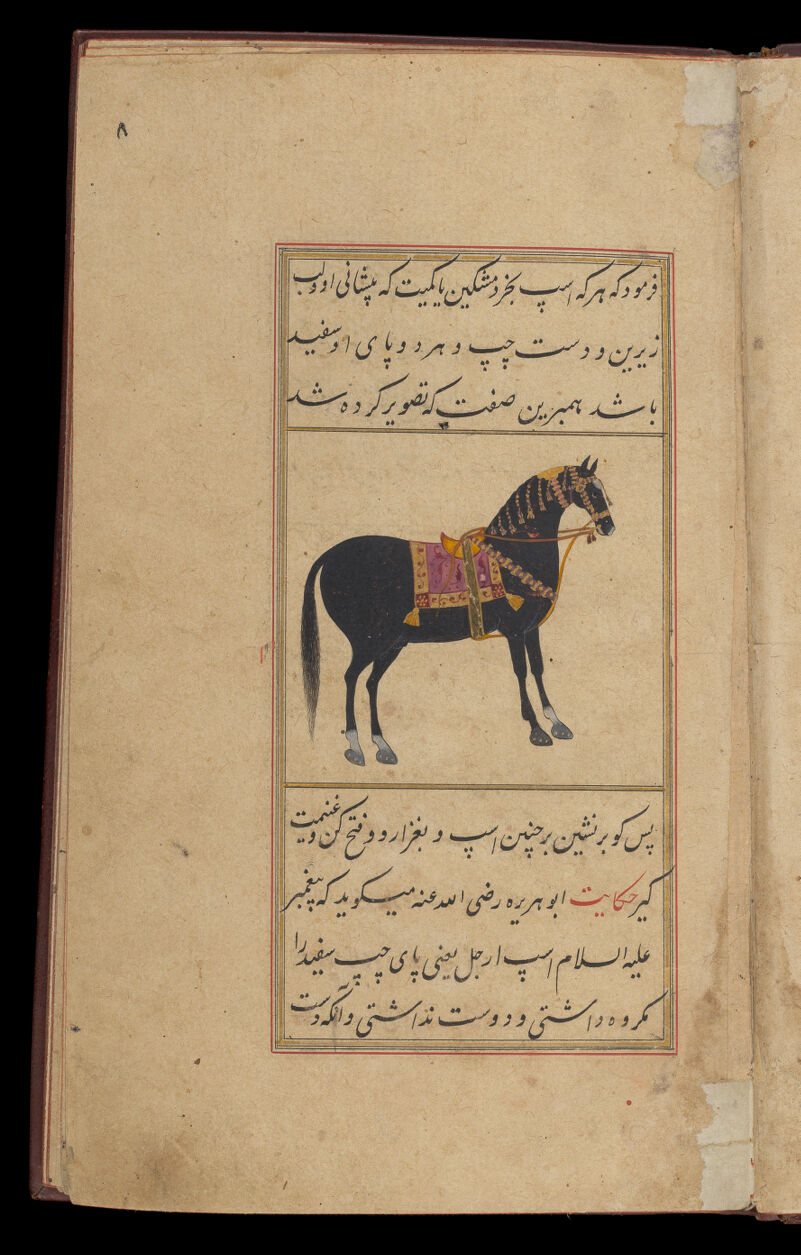 ۸
فرمود که هر که اسپ بخرد مشکین یا کمیت که پیشانی او و لب
زیرین و دست چپ و هر دو پای او سفید
باشد همبرین صفت که تصویر کرده شد
پس کو برنشین بر چنین اسپ و بغزا رو و فتح کن و غنیمت
کیر حکایت ابو هریره رضی الله عنه میکوید که پیغمبر
علیه السلام اسپ ارجل یعنی پای چپ سفید را
مکروه داشتی و دوست نداشتی و آنکه دست